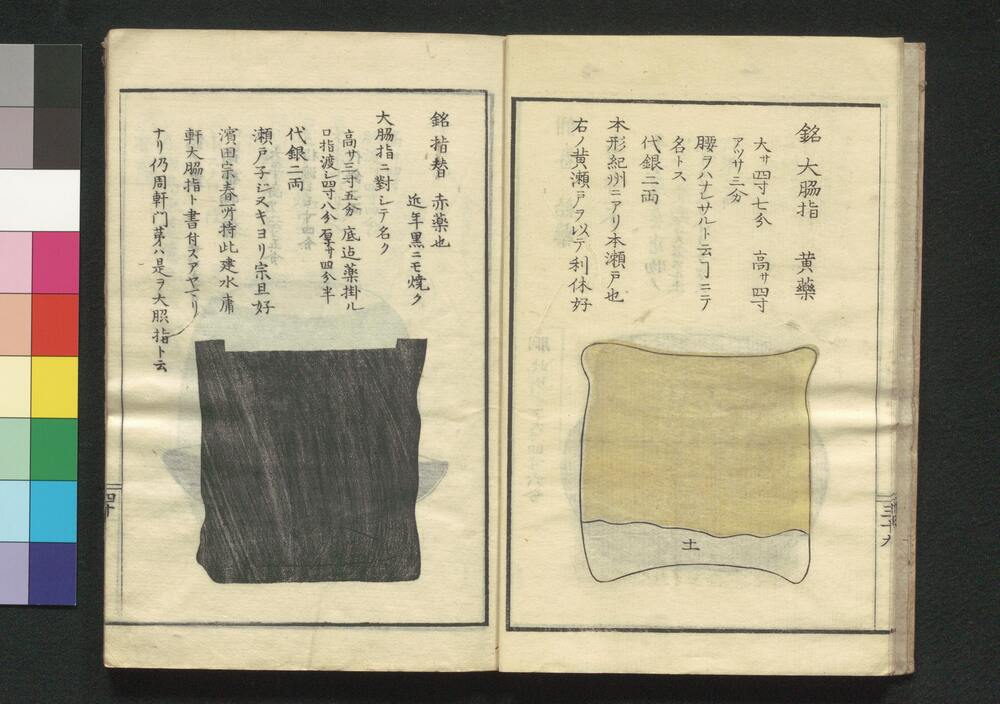 銘 大脇指 黄藥
大サ四寸七分 高サ四寸
アツサ三分
腰ヲハナレサルト云フニテ
名トス
代銀二両
本形紀州ニアリ本瀬戸也
右ノ黄瀬戸ヲ以テ利休好
土
三十九
銘 指替 赤藥也
近年黒ニモ焼ク
大脇指ニ對シテ名ク
高サ三寸五分 底迠藥掛ル
口指渡シ四寸八分 厚サ四分半
代銀二両
瀬戸子シヌキヨリ宗旦好
濱田宗春所持此建水庸
軒大脇指ト書付スアヤマリ
ナリ仍周軒門弟ハ是ヲ大照指ト云
四十